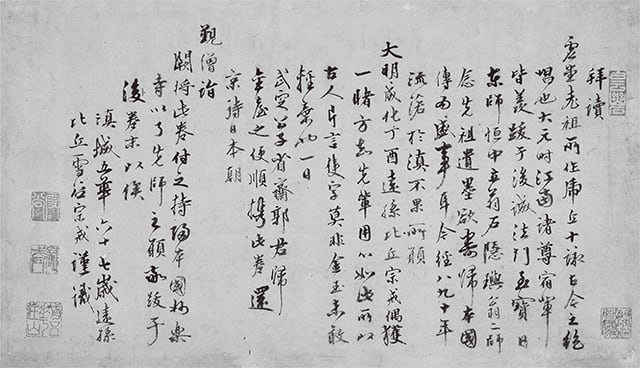 拜讀
虛堂老祖所作虎丘十詠古今之絕
唱也大元时江南諸尊宿輩
皆羨跋于後誠法門至寶日
東師恒中立翁石隱璵翁二師
念先祖遺墨欲壽歸本國
傳為盛事耳今經八九十年
流落於滇不果所願
大明成化丁酉遠孫比丘宗戒偶獲
一睹方知先輩用心如此所以
古人片言隻字莫非金玉未敢
輕棄也一日
武定公子省齋郭君歸
金臺之便順携此卷還
京待日本朝
覲僧詣
闕將此卷付之持歸本國樂
寺以了先師之願敬跋于
後卷末以俟
滇城五華六十七歲遠孫
比丘雪庭宗戒謹識